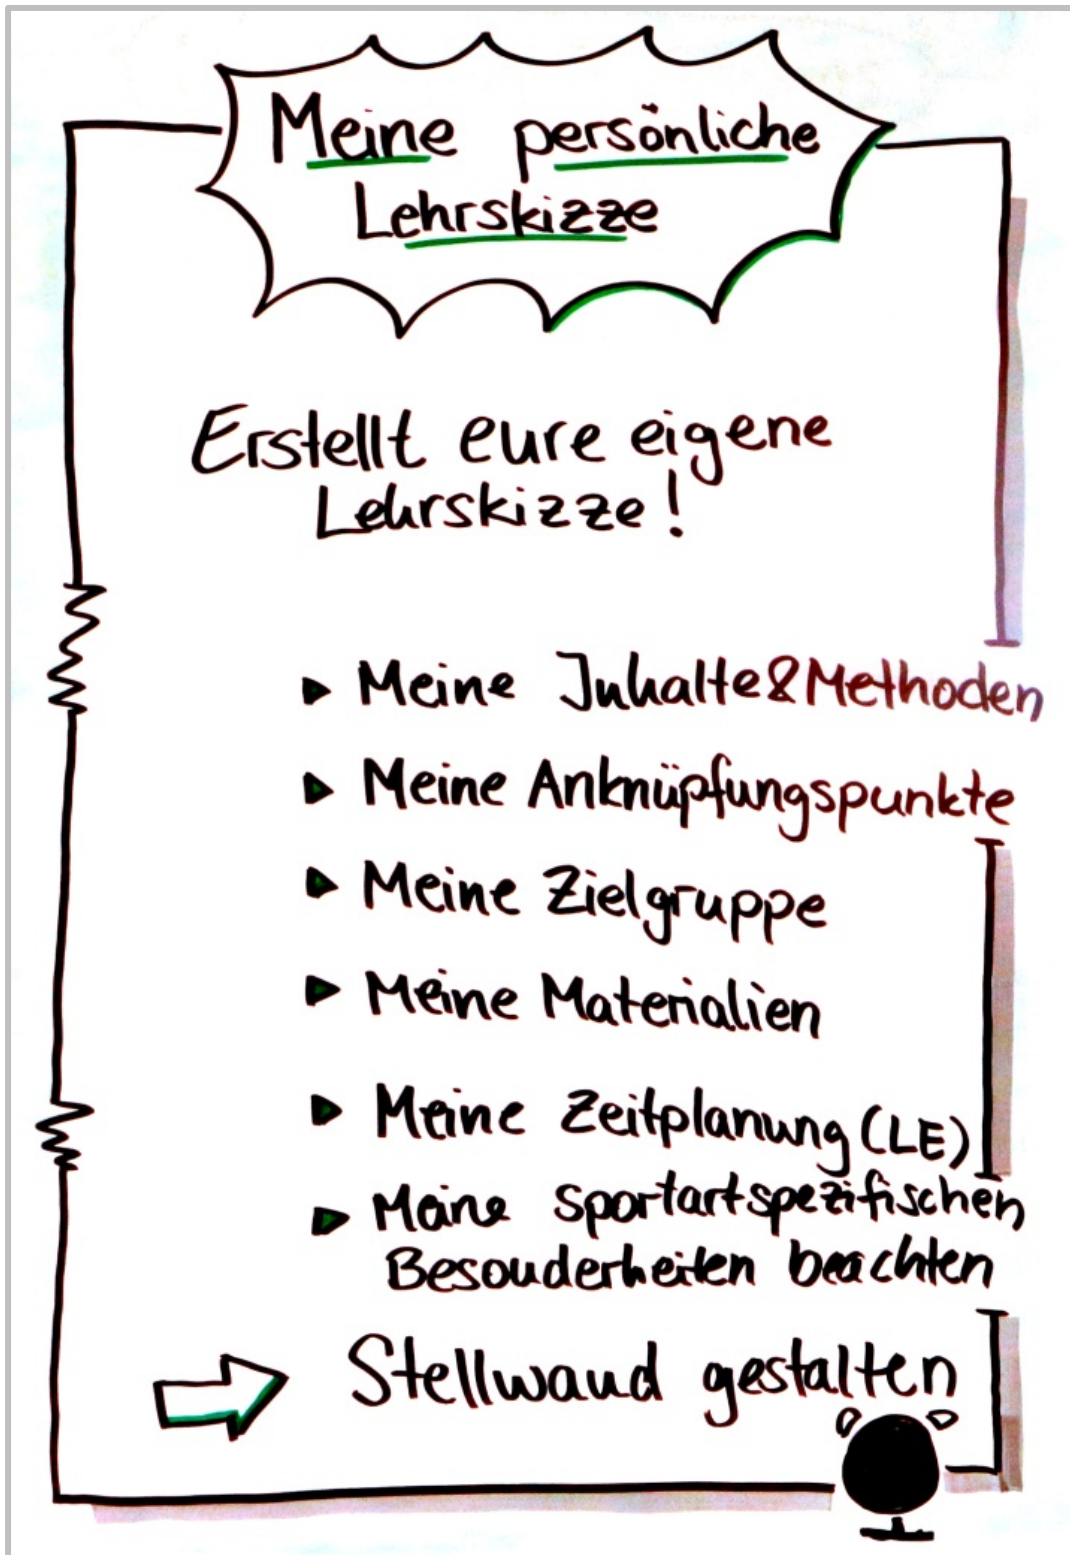 Meine persönliche
Lehrskizze
Erstellt eure eigene
Lehrskizze!
▶ Meine Inhalte & Methoden
▶ Meine Anknüpfungspunkte
▶ Meine Zielgruppe
▶ Meine Materialien
▶ Meine Zeitplanung (LE)
▶ Meine sportartspezifischen
Besonderheiten beachten
Stellwand gestalten